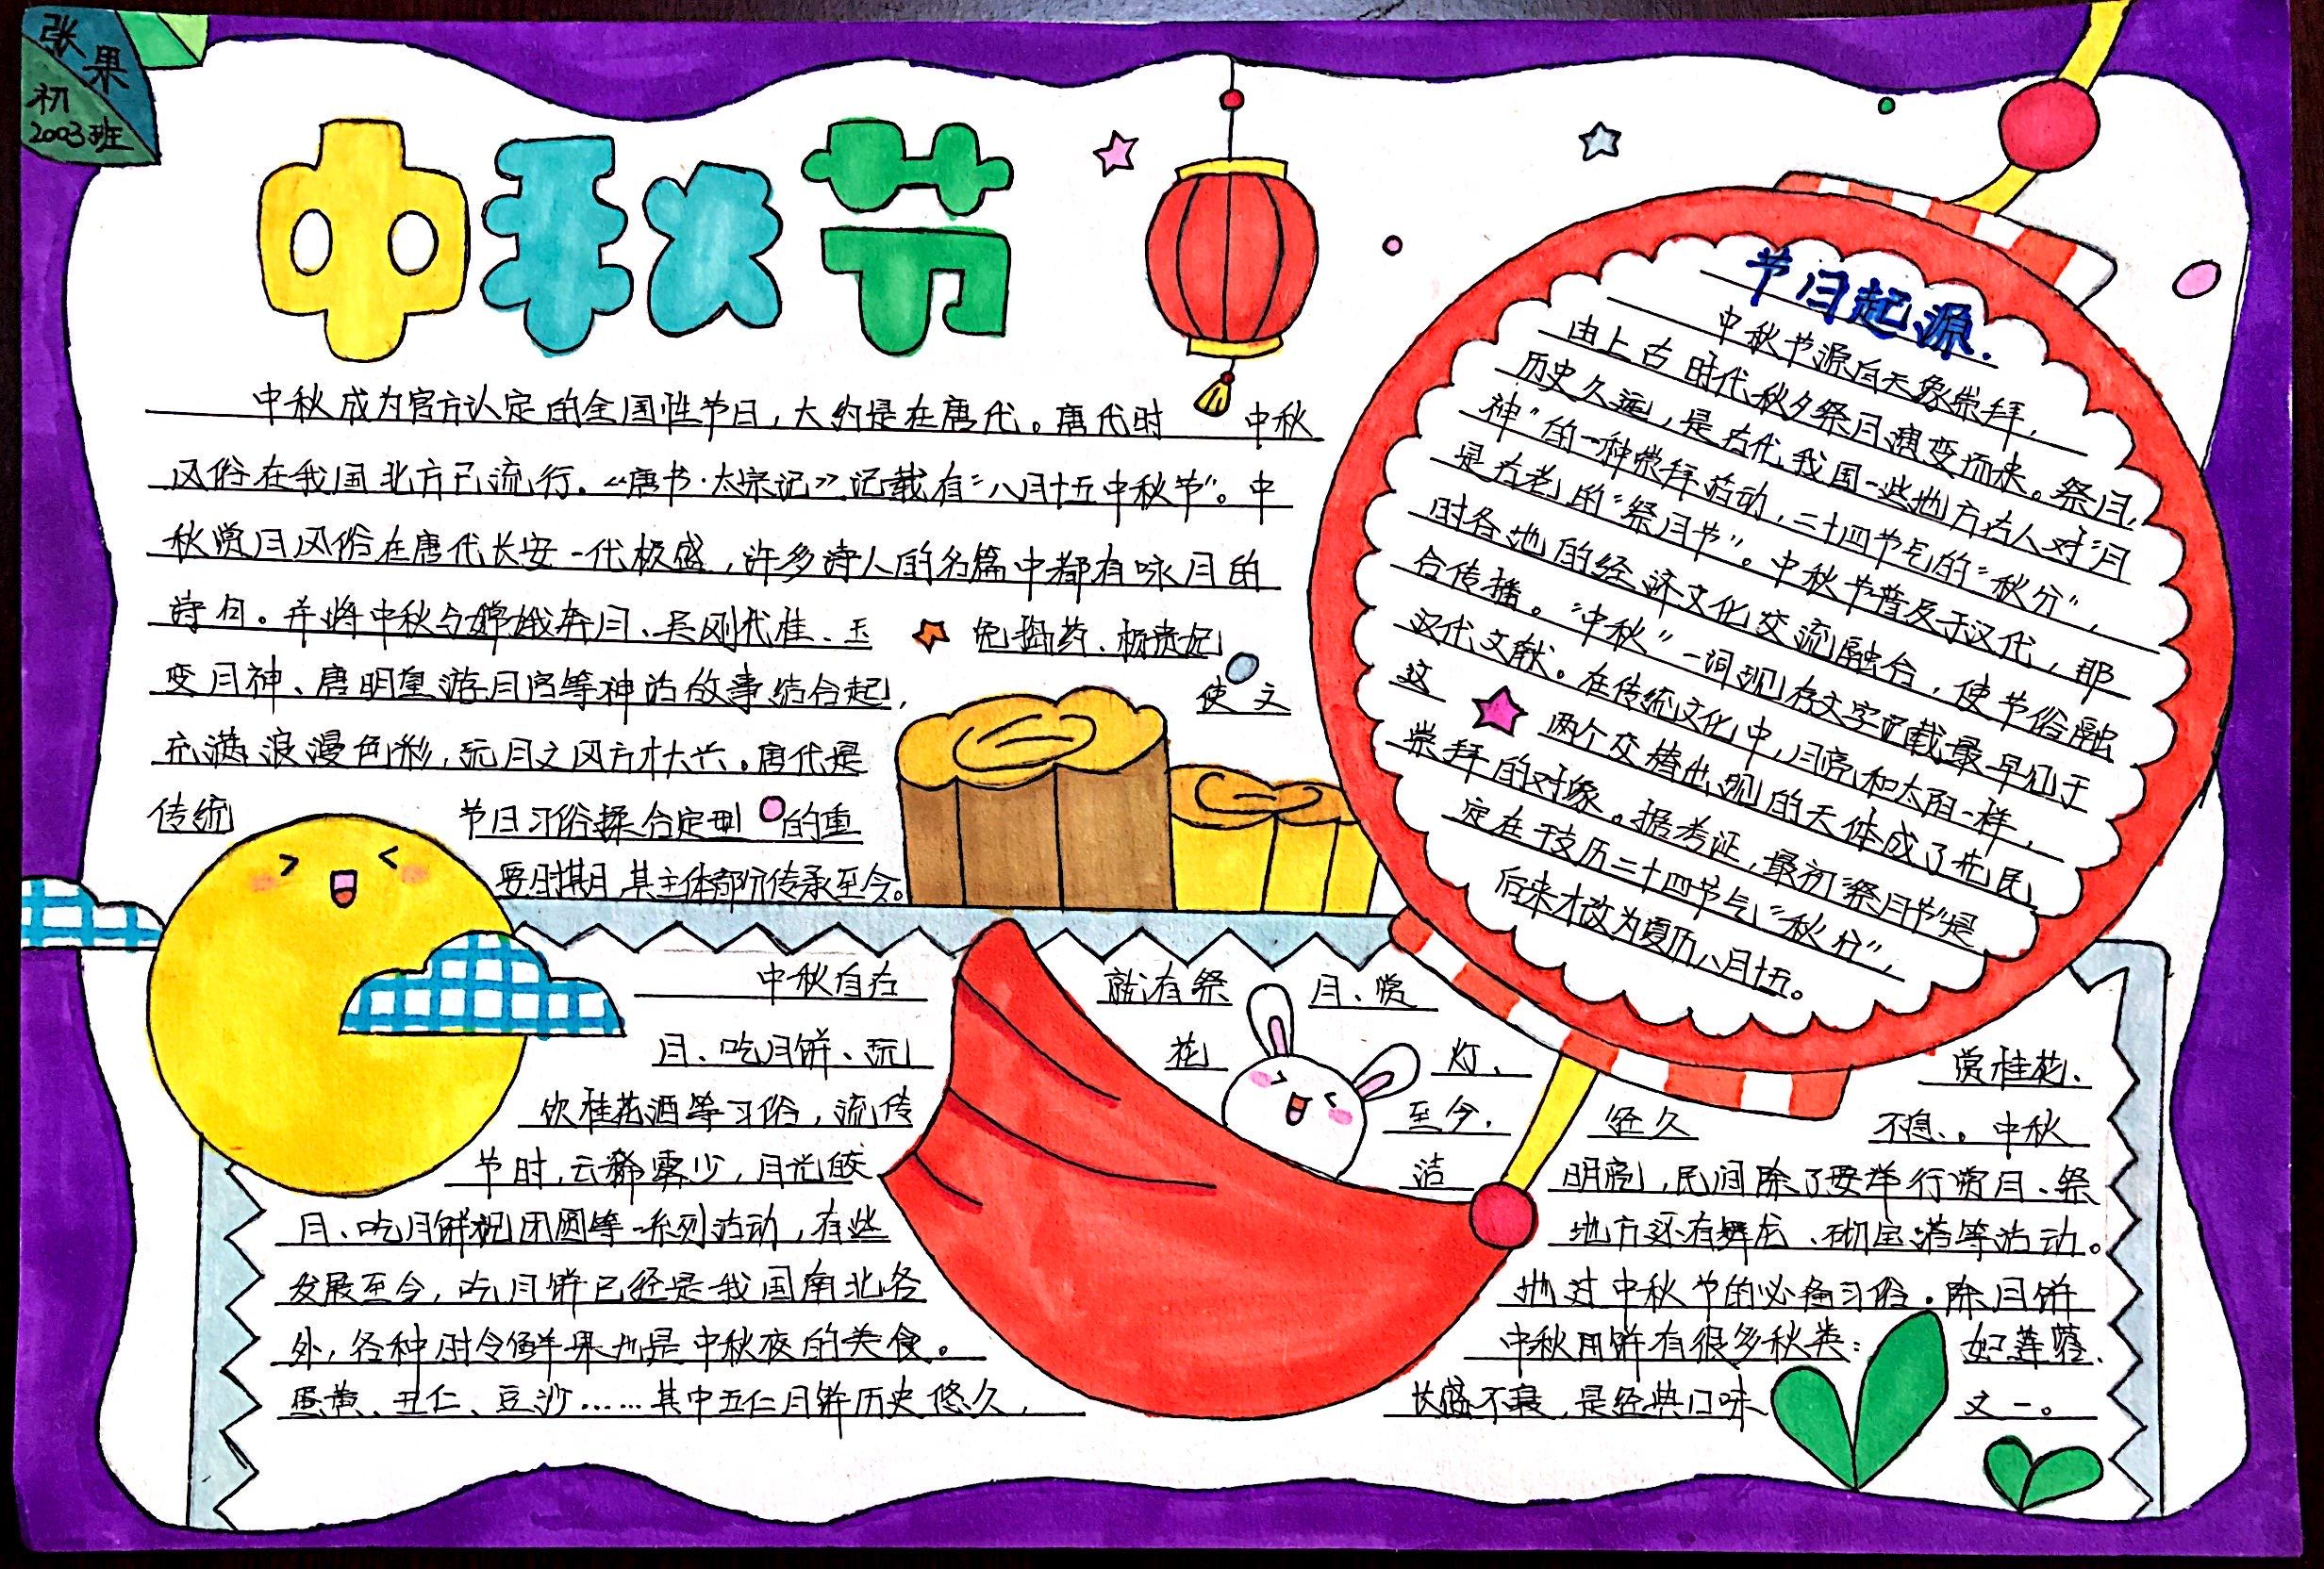 张果
初
2003班
中秋节
中秋成为官方认定的全国性节日，大约是在唐代。唐代时 中秋
风俗在我国北方已流行。《唐书·太宗记》记载有“八月十五中秋节”。中
秋赏月风俗在唐代长安一代极盛，许多诗人的名篇中都有咏月的
诗句。并将中秋与嫦娥奔月、吴刚伐桂、玉 兔捣药、杨贵妃
变月神、唐明皇游月宫等神话故事结合起， 使文
充满浪漫色彩，玩月之风方才大兴。唐代是
传统 节日习俗揉合定型 的重
要时期，其主体部份传承至今。
节日起源.
中秋节源自天象崇拜，
由上古时代秋夕祭月演变而来。祭月，
历史久远，是古代我国一些地方古人对“月
神”的一种崇拜活动，二十四节气的“秋分”，
是古老的“祭月节”。中秋节普及于汉代，那
时各地的经济文化交流融合，使节俗融
合传播。“中秋”一词现存文字记载最早见于
汉代文献。在传统文化中，月亮和太阳一样，
这 两个交替出现的天体成了先民
崇拜的对象。据考证，最初“祭月节”是
定在干支历二十四节气“秋分”，
后来才改为夏历八月十五。
中秋自在 就有祭 月、赏
月、吃月饼、玩 花 灯、 赏桂花、
饮桂花酒等习俗，流传 至今. 经久 不息。中秋
节时，云稀雾少，月光皎 洁 明亮，民间除了要举行赏月、祭
月、吃月饼祝团圆等一系列活动，有些 地方还有舞龙、砌宝塔等活动。
发展至今，吃月饼已经是我国南北各 地过中秋节的必备习俗。除月饼
外，各种时令鲜果也是中秋夜的美食。 中秋月饼有很多秋类： 如莲蓉、
蛋黄、五仁、豆沙……其中五仁月饼历史悠久， 长盛不衰，是经典口味 之一。